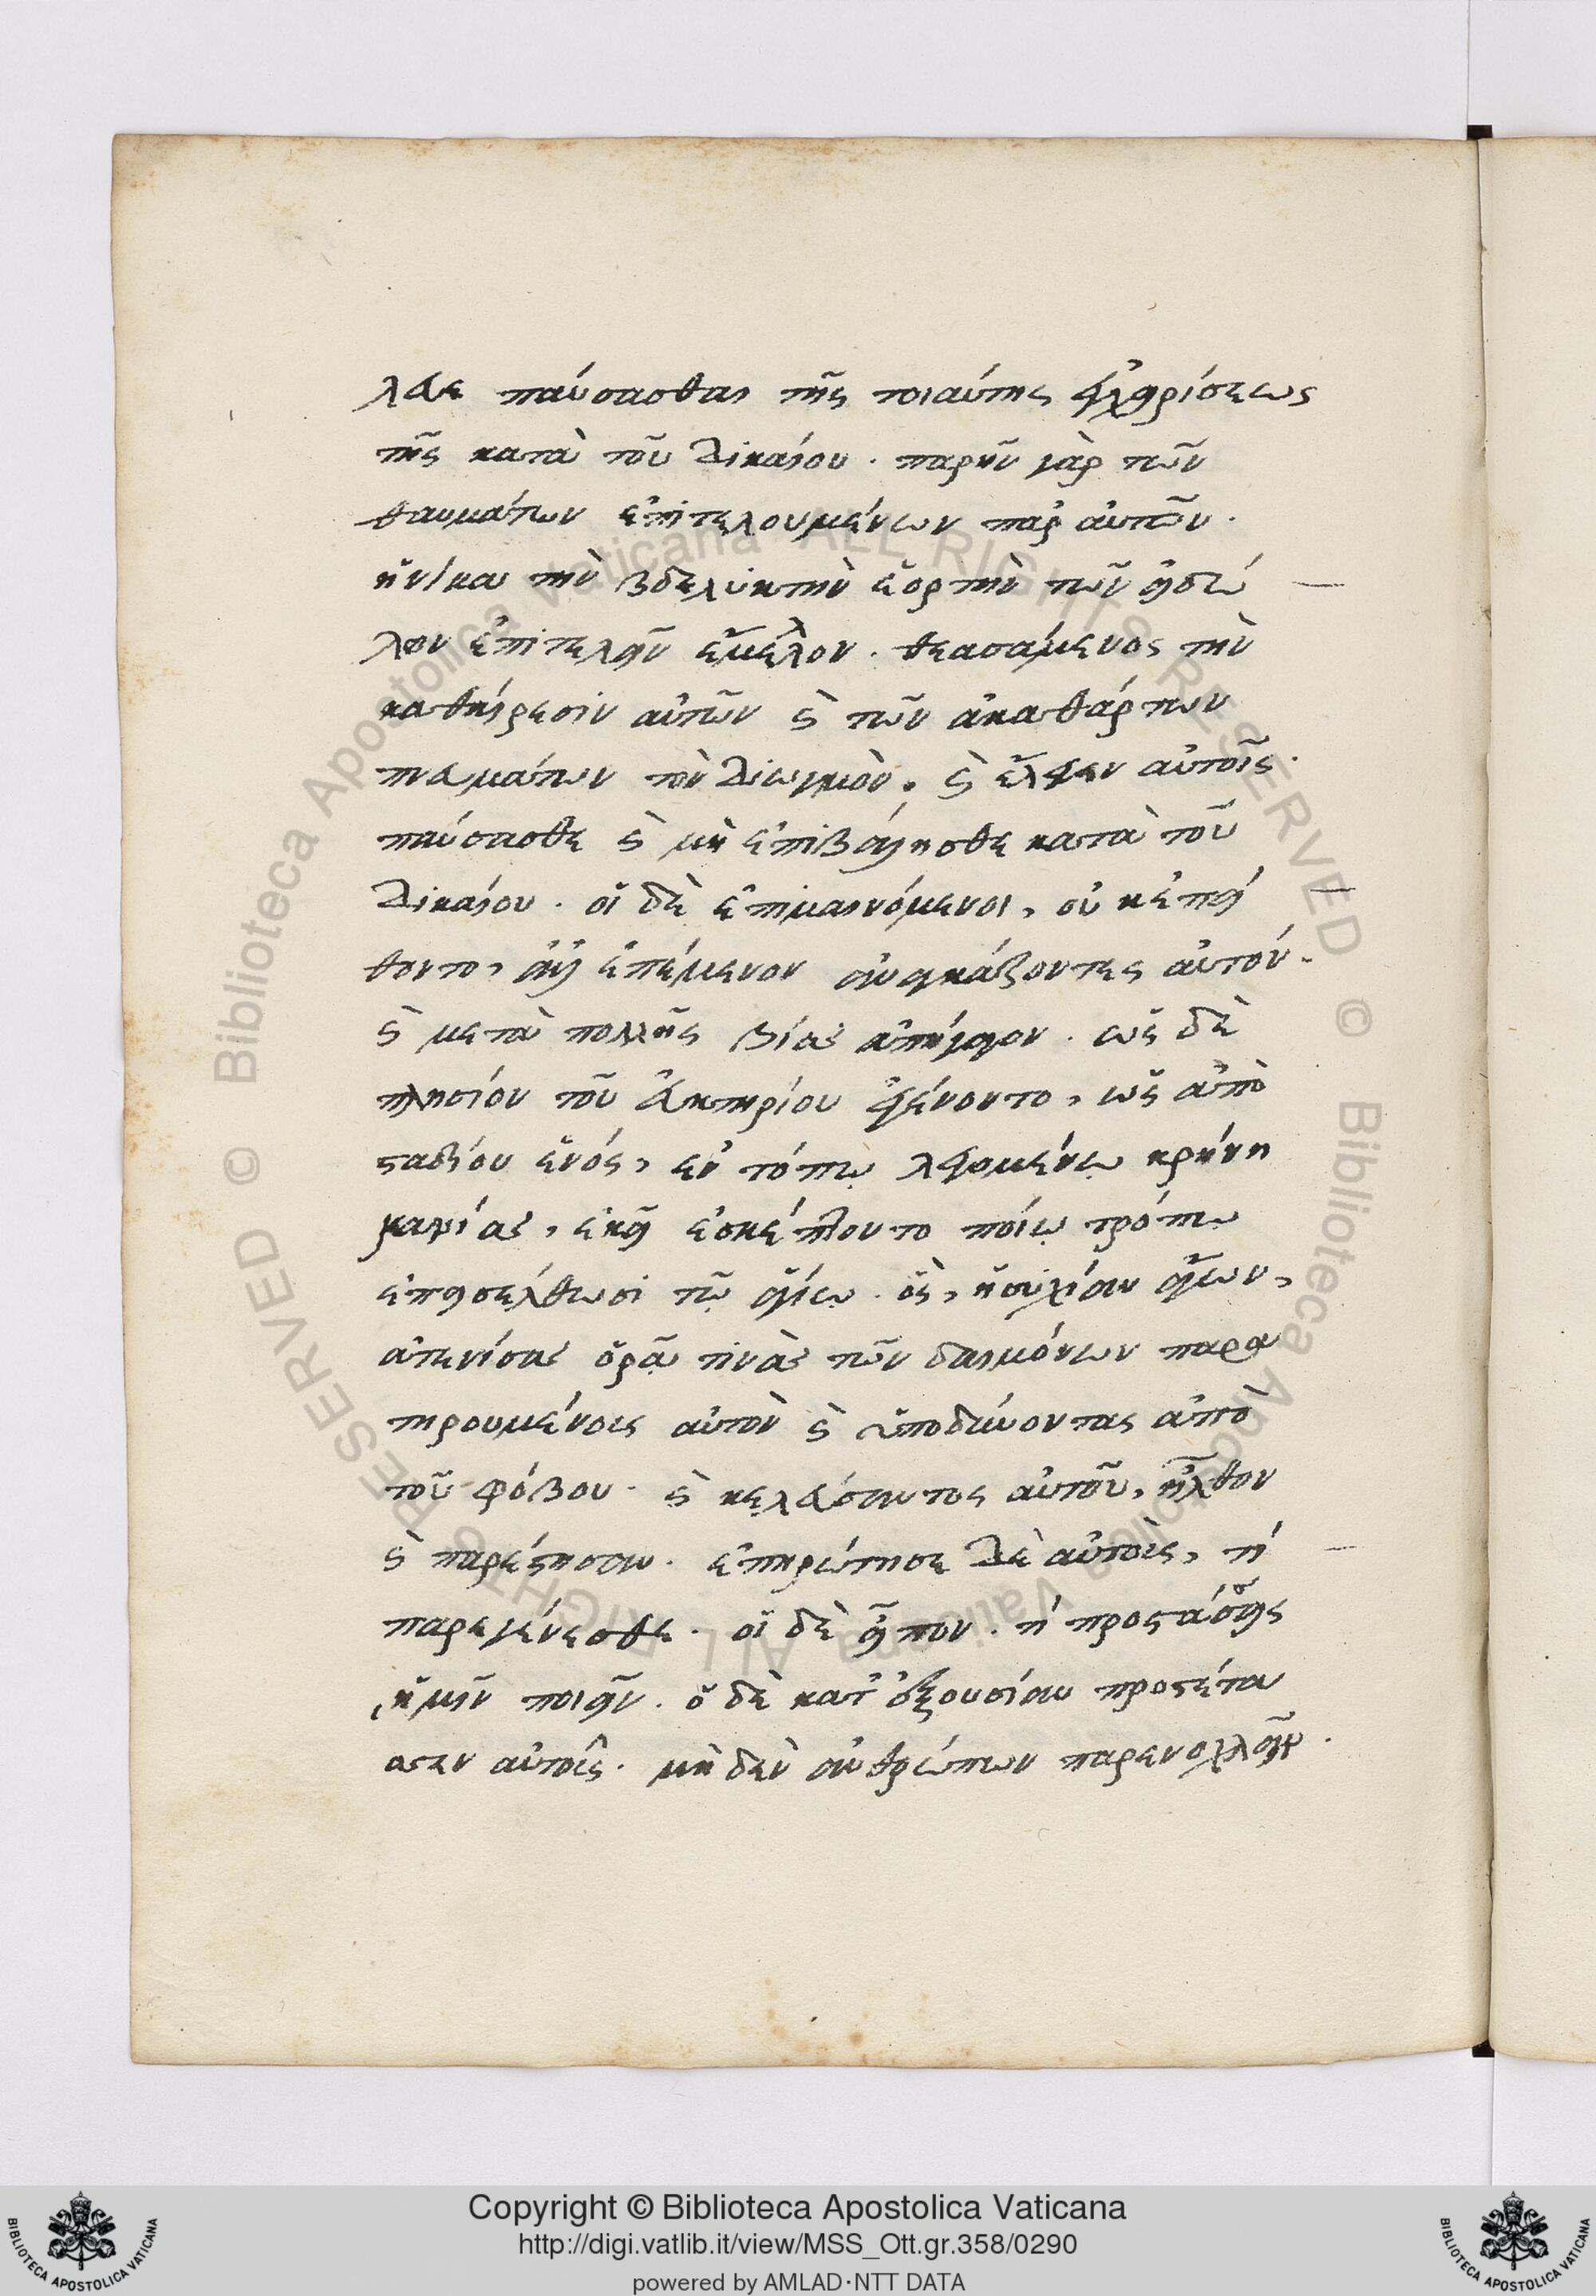 λευε παύσασθαι τῆς τοιαύτης ἐγχειρίσεως
τῆς κατὰ τοῦ δικαίου. παρῆν γὰρ τῶν
θαυμάτων ἐπιτελουμένων παρ αὐτῶν.
ἡνίκα τὴν βδελυκτὴν ἑορτὴν τῶν εἰδώ
λων ἐπιτελεῖν ἔμελλον. θεασάμενος τὴν
καθαίρεσιν αὐτῶν ϗ τῶν ἀκαθάρτων
πνευμάτων τὸν διωγμὸν. ϗ ἔλεγεν αὐτοῖς.
παύσασθε ϗ μὴ ἐπιβάλησθε κατὰ τοῦ
δικαίου. οἱ δὲ ἐπιμαινόμενοι, οὐκ ἐπεί
θοντο, ἀλλ ἐπέμενον ἀναγκάζοντες αὐτόν.
ϗ μετὰ πολλῆς βίας ἀπήγαγον. ὡς δὲ
πλησίον τοῦ εὐκτηρίου ἐγένοντο, ὡς ἀπὸ
σταδίου ἑνός, ἐν τόπῳ λεγομένῳ κρήνη
μαρίας, ἐκεῖ ἐσκέπτοντο ποίῳ τρόπῳ
ἐπεισέλθωσι τῷ ἁγίῳ. ὃς, ἡσυχίαν ἄγων,
ἀτενίσας ὁρᾷ τινὰς τῶν δαιμόνων παρα
τηρουμένους αὐτὸν ϗ ὑποδύνοντας ἀπὸ
τοῦ φόβου. ϗ κελεύσαντος αὐτοῦ, ἦλθον
ϗ παρέστησαν. ἐπηρώτησε δὲ αὐτοὺς, τί
παρεγένεσθε. οἱ δὲ εἶπον. τί προστάσσεις
ἡμῖν ποιεῖν. ὁ δὲ κατ ἐξουσίαν προσέτα
σσεν αὐτοῖς. μηδὲν ἀνθρώπων παρενοχλεῖν.
Copyright © Biblioteca Apostolica Vaticana
http://digi.vatlib.it/view/MSS_Ott.gr.358/0290
powered by AMLAD·NTT DATA